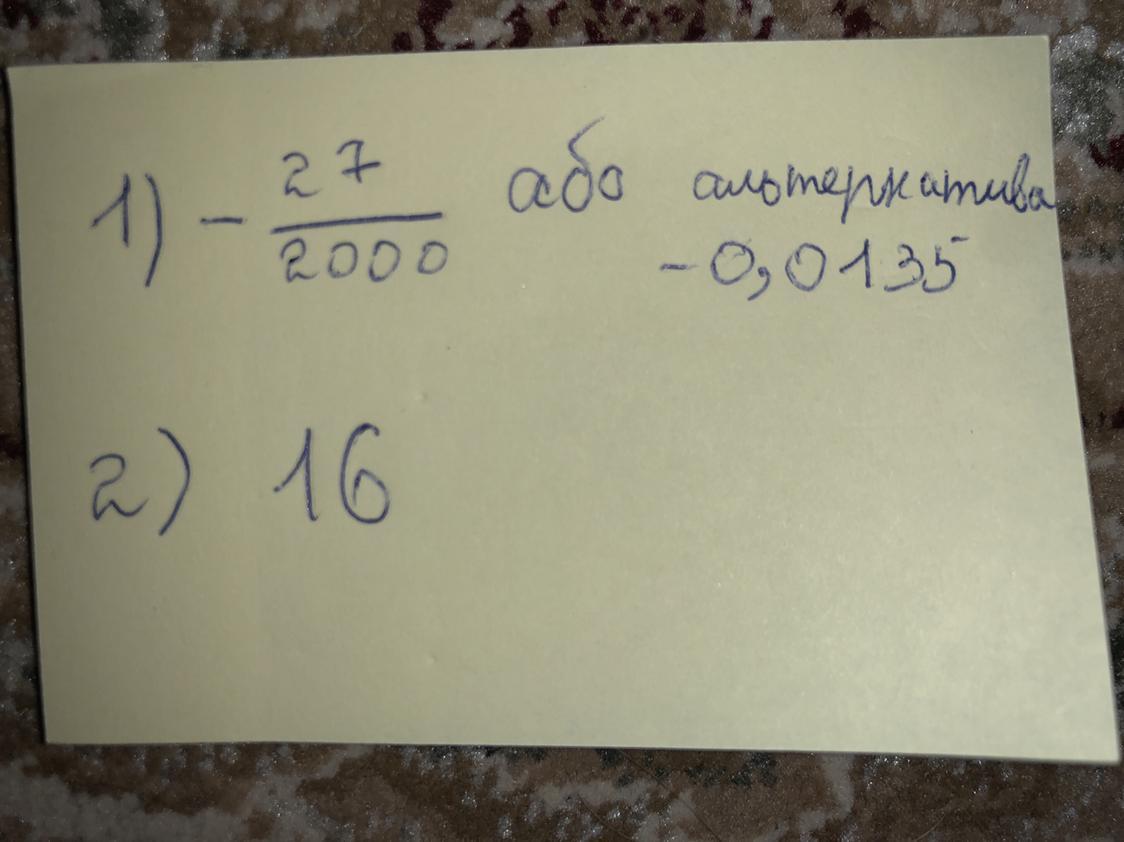 1) - 27/2000 або альтернатива
-0,0135
2) 16